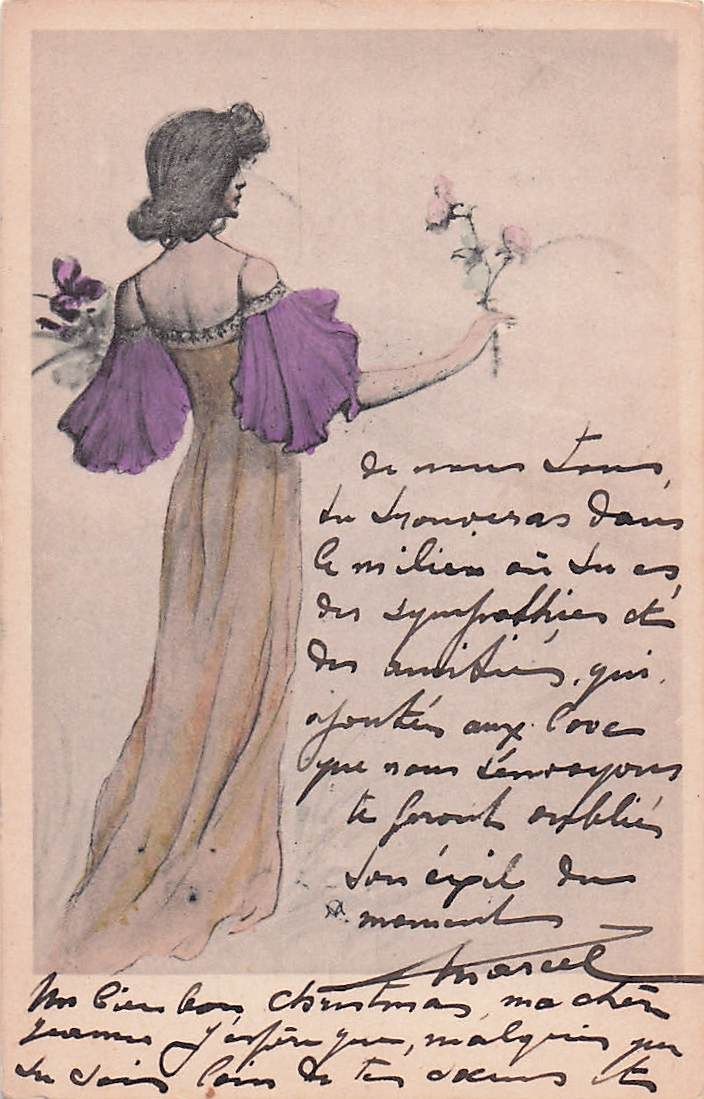 Un bien bon Christmas, ma chère
Jeanne J'espère que, malgré que
tu sois loin de tes sœurs et
de nous tous,
tu trouveras dans
le milieu où tu es,
des sympathies et
des amitiés, qui,
ajoutés aux loves
que nous t'envoyons
te feront oublier
ton éxil du
moment
Marcel